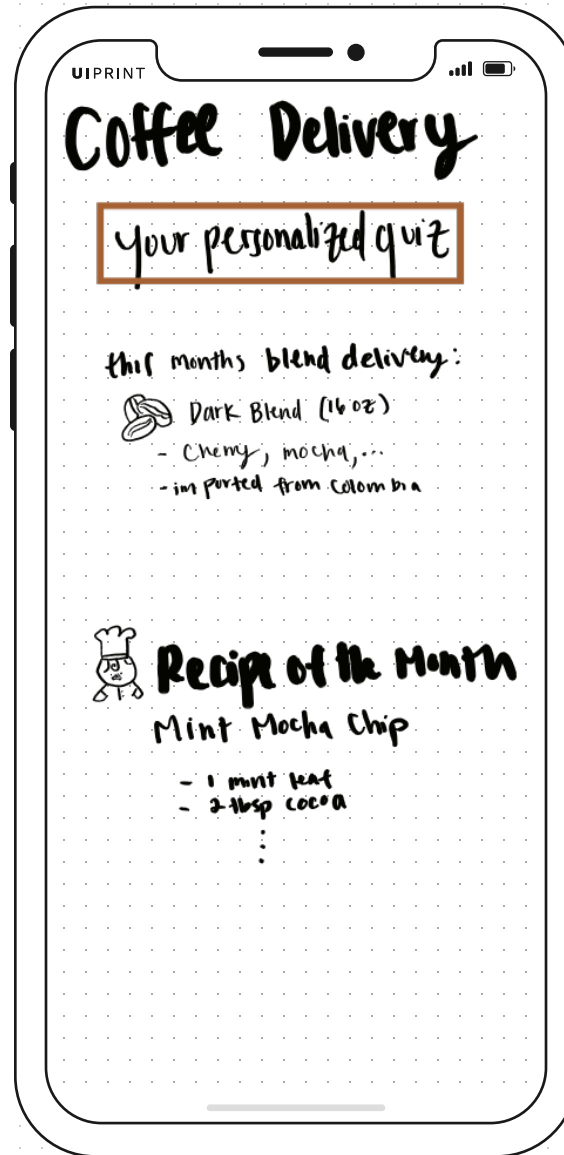 UIPRINT
Coffee Delivery
Your personalized quiz
this months blend delivery:
Dark Blend (16 oz)
- Cherry, mocha,...
- imported from Colombia
Recipe of the Month
Mint Mocha Chip
- 1 mint leaf
- 2 tbsp cocoa